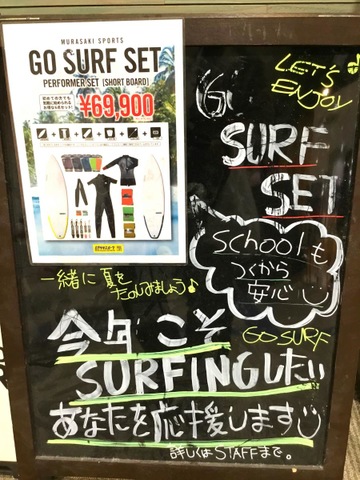 MURASAKI SPORTS
GO SURF SET
PERFORMER SET [SHORT BOARD]
¥69,900
LET'S ♪
ENJOY
Go
SURF
SET
Schoolも
つくから
安心
一緒に夏を
たのしみましょう♪
GO SURF
今年こそ
SURFINGしたい
あなたを応援します
詳しくはSTAFFまで。